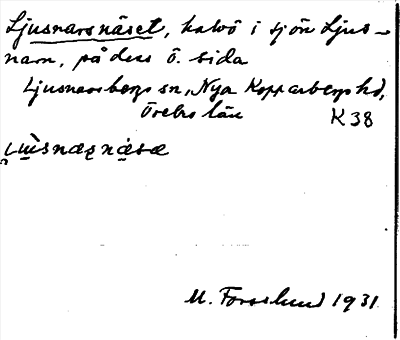 Ljusnarsnäset, halvö i sjön Ljus-
narn, på dess ö. sida
Ljusnarsbergs sn, Nya Kopparbergs hd,
Örebro län K 38
M. Forslund 1931